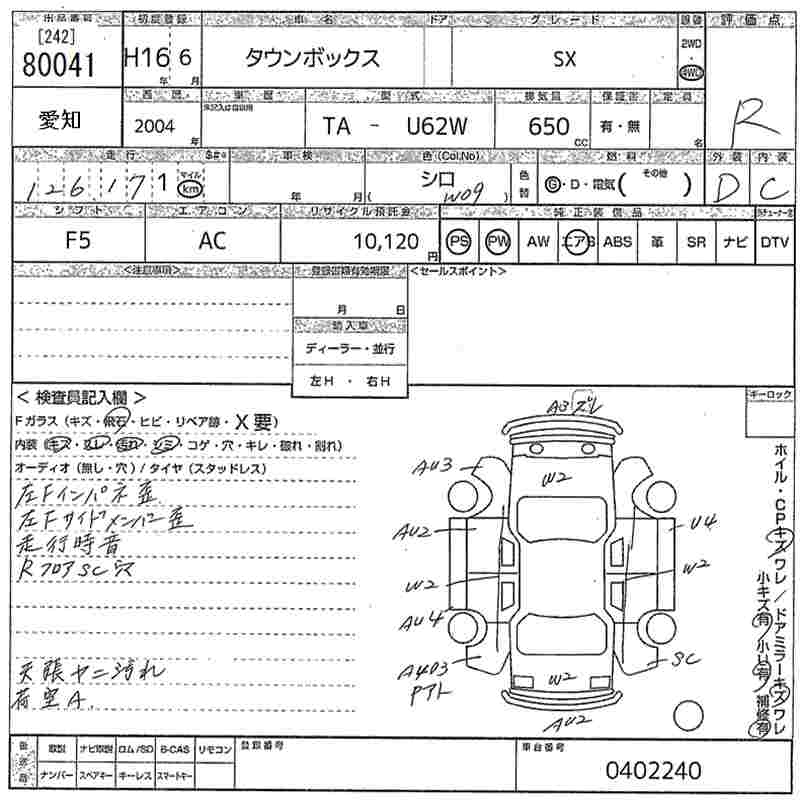 出品番号 初度登録 車名 ドア グレード 駆動 評価点
[242]
80041 H16年 6月 タウンボックス SX 2WD・4WD R
愛知 西暦 車歴 型式 排気量 保証書 定員
未記入は自家用
2004年 TA - U62W 650cc 有・無 名
走行 車検 色(Col.No) 燃料 その他 外装 内装
126,171 マイル km 年 月 シロ ( W09 ) 色替 G・D・電気( ) D C
シフト エアコン リサイクル預託金 純正装備品
F5 AC 10,120円 PS PW AW エアB ABS 革 SR ナビ DTV
<注意事項> 登録書類有効期限 <セールスポイント>
月 日
輸入車
ディーラー・並行
左H・右H
<検査員記入欄> キーロック
Fガラス(キズ・飛石・ヒビ・リペア跡・X要)
内装(キズ・スレ・汚れ・シミ・コゲ・穴・キレ・破れ・割れ)
オーディオ(無し・穴)/タイヤ(スタッドレス)
左Fインパネ歪
左Fサイドメンバー歪
走行時音
RフロアSC穴
天張ヤニ汚れ
荷室A.
A3ズレ
AU3
W2
AU2
U4
W2
W2
AU4
A403
SC
W2 W2
AU2
ホイル・CPキズワレ/ドアミラーキズワレ
小キズ有/小凹有/補修有
後送品 取説 ナビ取説 ロム/SD B-CAS リモコン 登録番号 車台番号
ナンバー スペアキー キーレス スマートキー 0402240